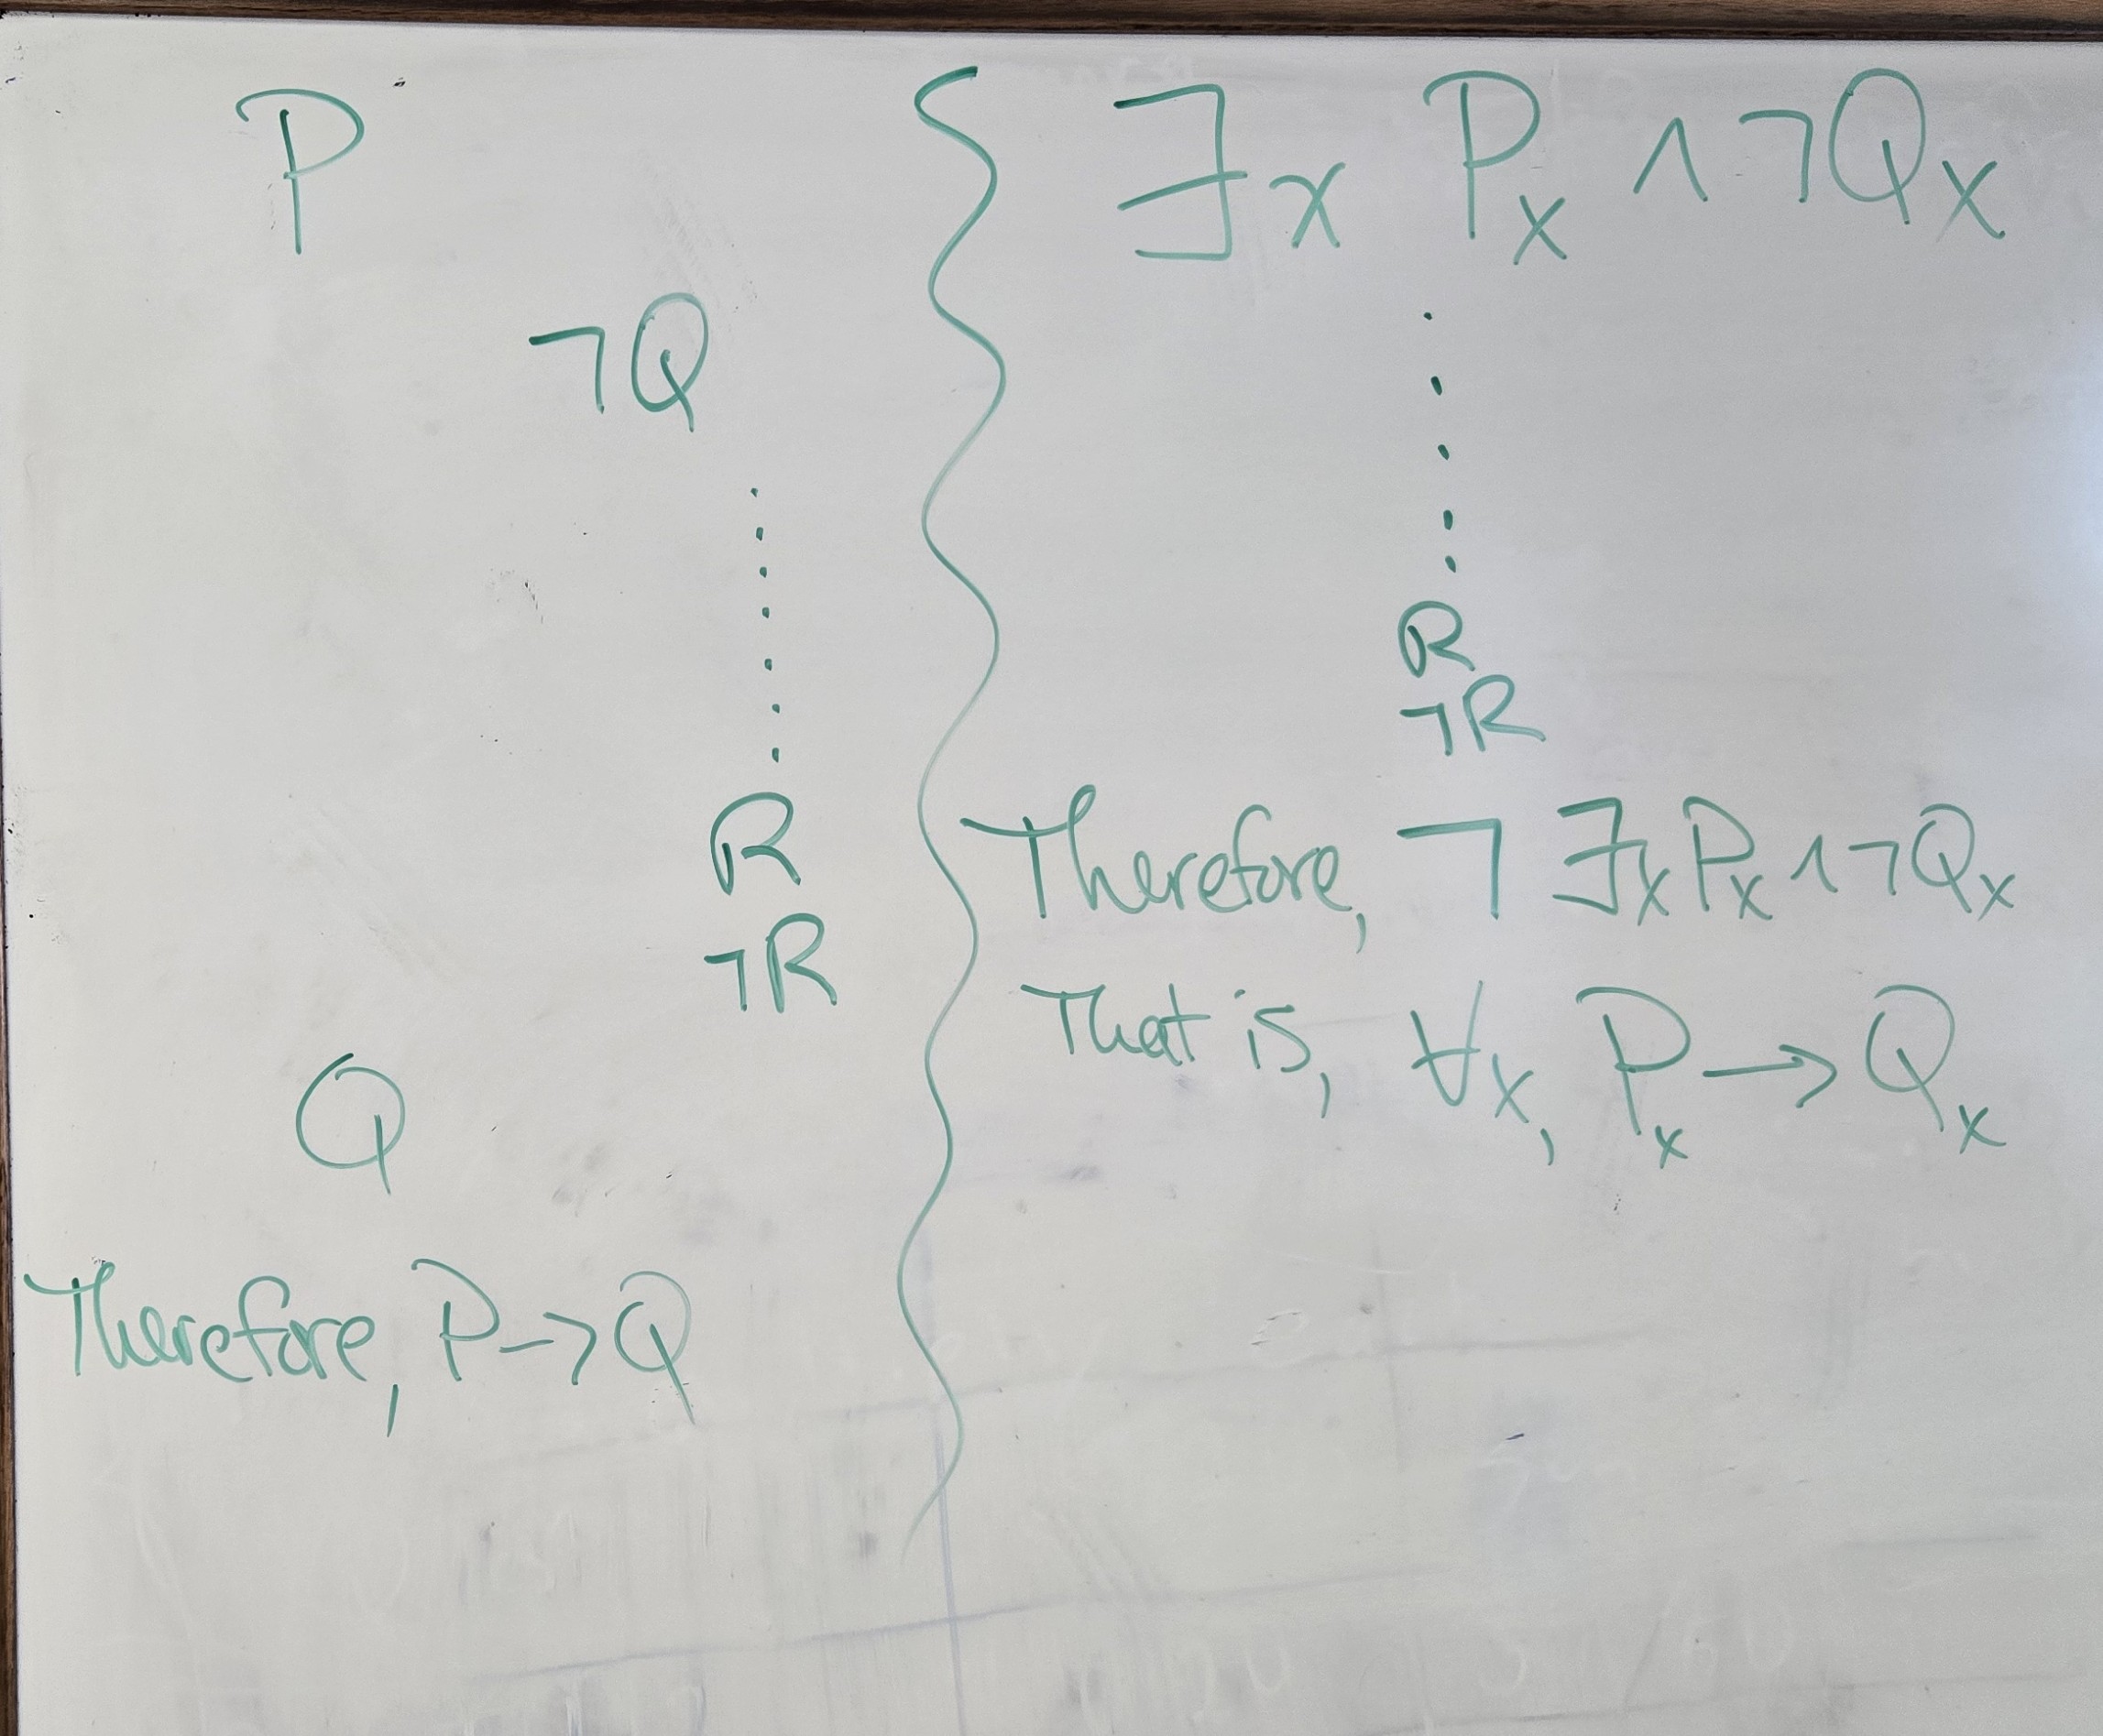 P
¬Q
R
¬R
Q
Therefore, P→Q
∃x Px ∧ ¬Qx
R
¬R
Therefore, ¬∃x Px ∧ ¬Qx
That is, ∀x, Px → Qx